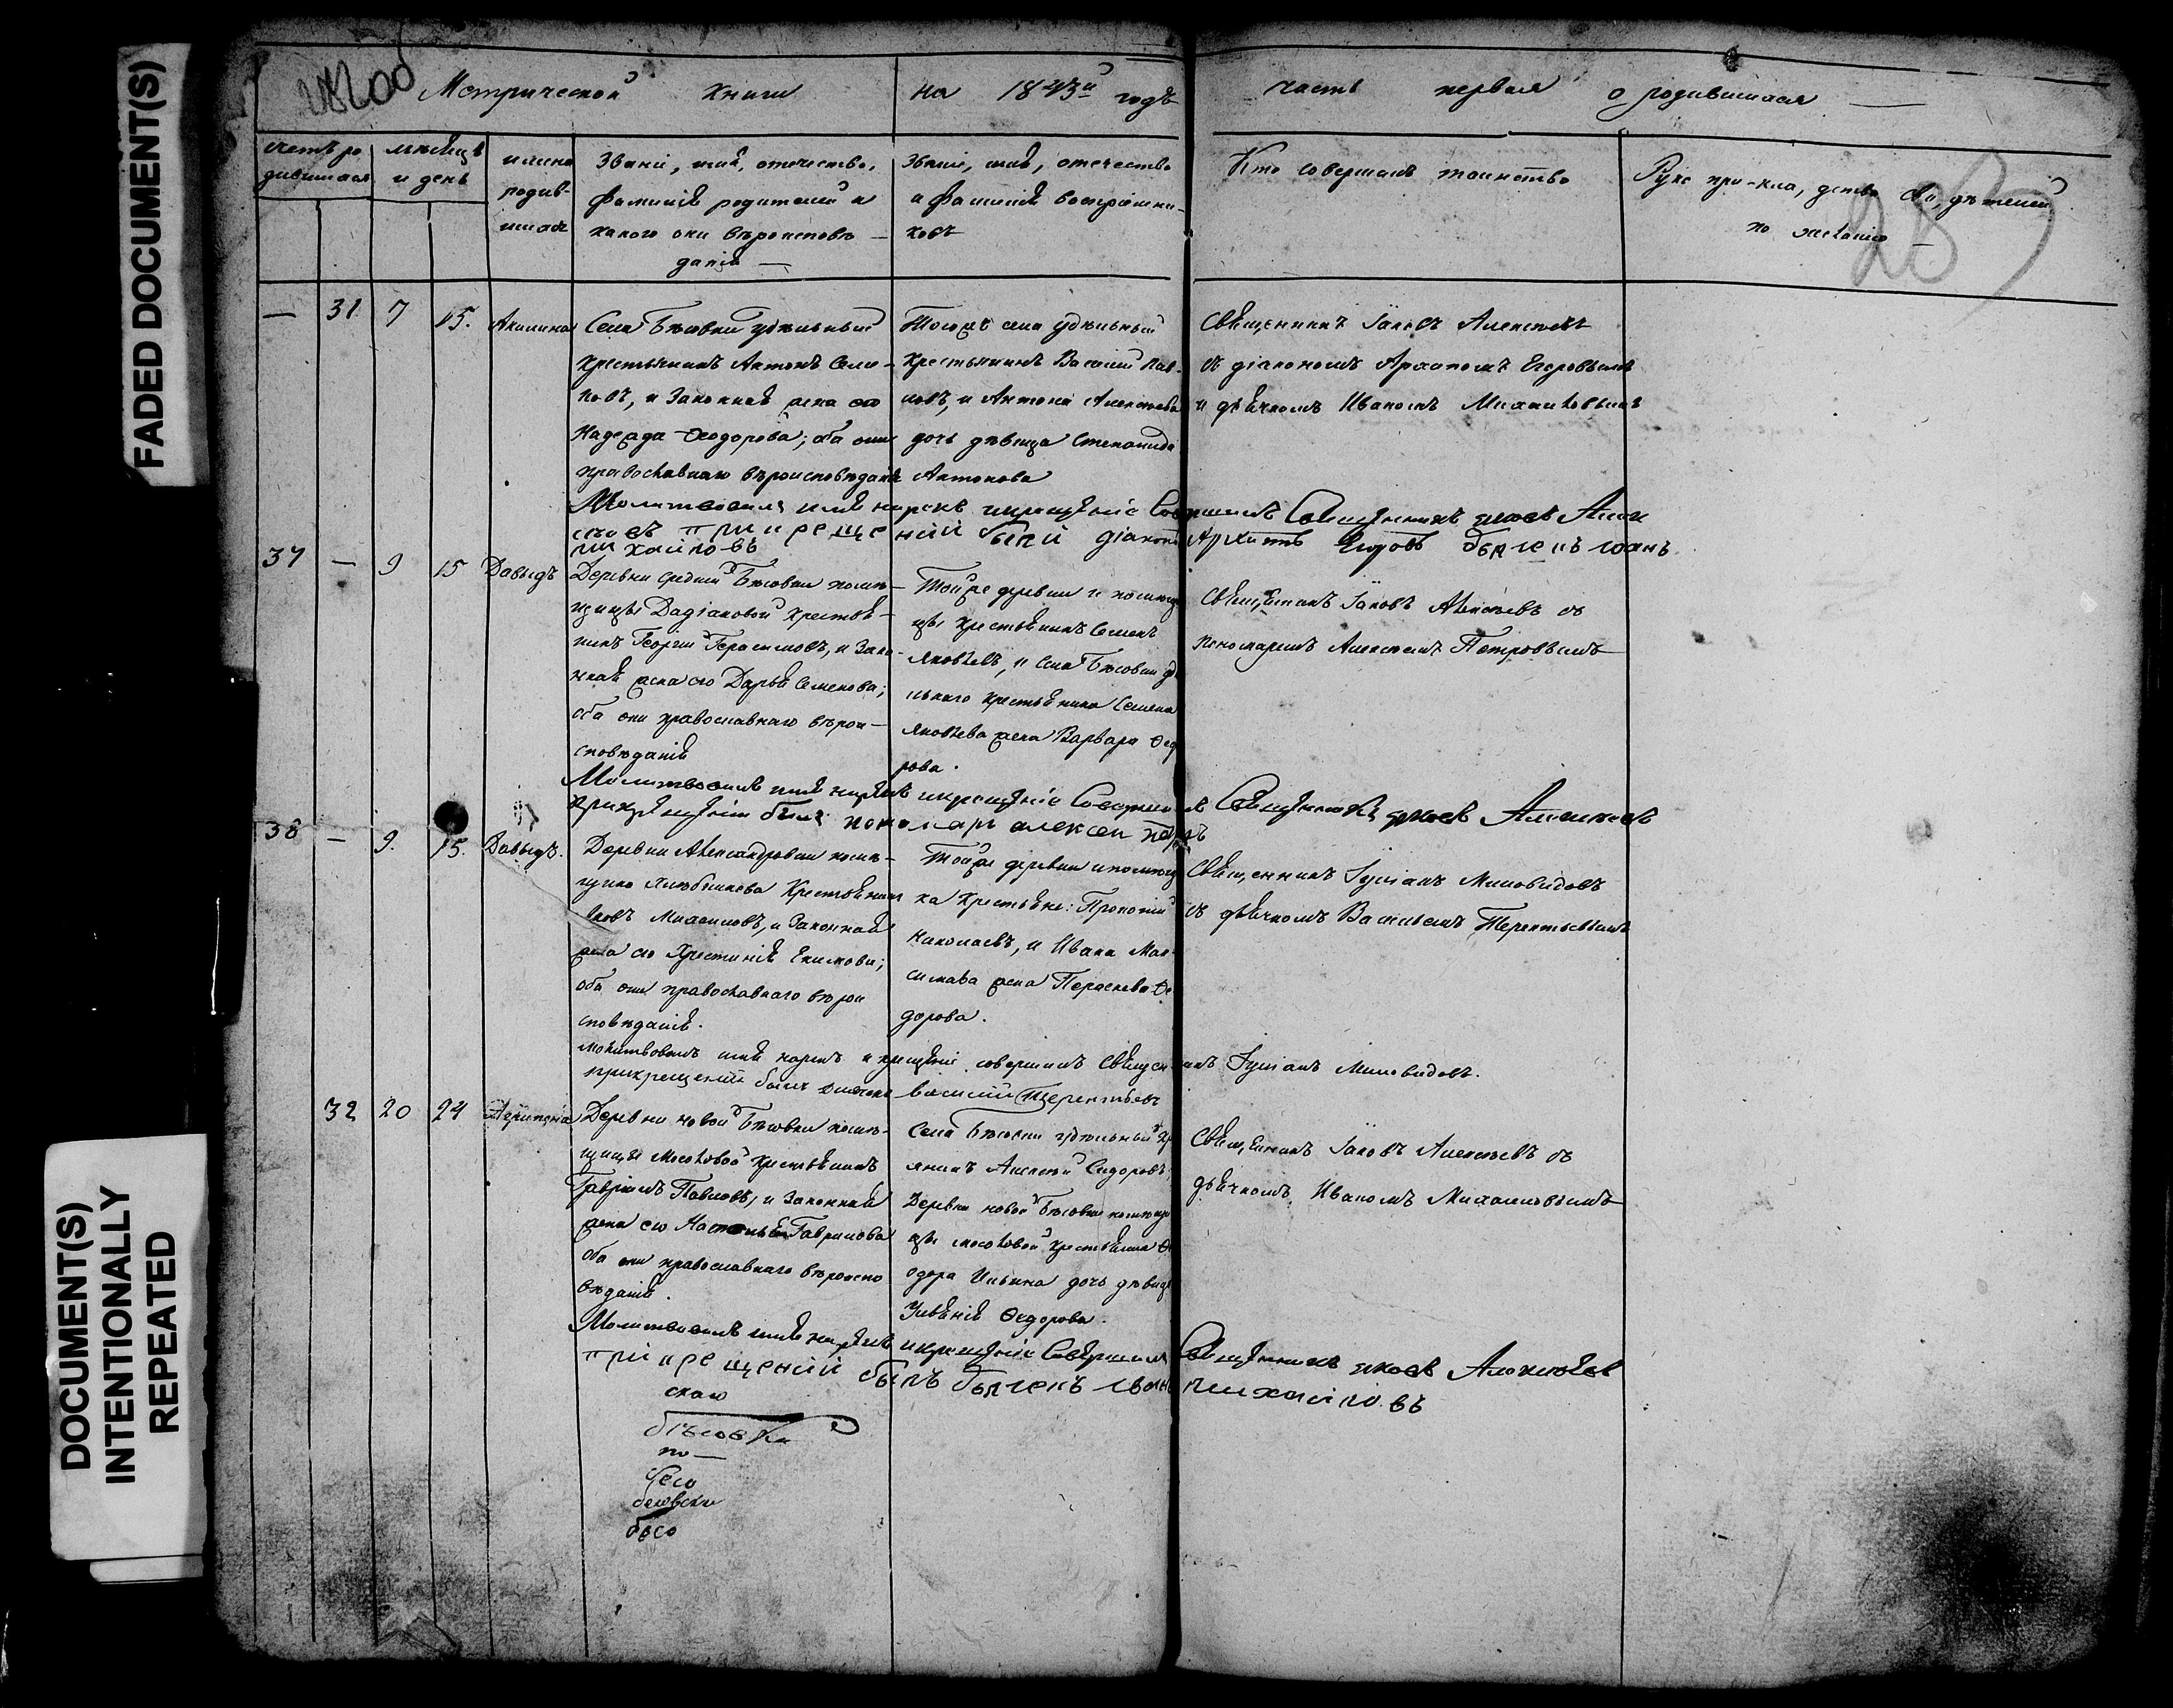 FADED DOCUMENT(S)
DOCUMENT(S)
INTENTIONALLY
REPEATED
Метрической книги на 1843й годъ часть первая о родившихся
283
Счетъ родившихся
мѣсяцъ и день
имена родившихся
Званіе, имя, отечество,
фамилія родителей и
какого они вѣроисповѣ-
данія —
Званіе, имя, отечество
и фамилія воспріемни-
ковъ
Кто совершалъ таинство
Руко при-кла, дство сви, дѣтелей
по желанію —
— 31 7 15. Акилина
Села Бѣсовки удѣльный
крестьянинъ Антонъ Семе-
новъ, и законная жена его
Надежда Ѳеодорова; оба они
православнаго вѣроисповѣданія
Тогоже села удѣльный
крестьянинъ Василій Пав-
ловъ, и Антона Алексѣева
дочь дѣвица Степанида
Антонова
Священникъ Іаковъ Алексѣевъ
съ діакономъ Архипомъ Егоровымъ
и дьячкомъ Иваномъ Михайловымъ
Молитвовалъ имя нарекъ и крещеніе Совершалъ Священникъ Яковъ Алек
сѣевъ при крещеній были діаконъ Архипъ Егоровъ дьячекъ Іоанъ
михайловъ
37 — 9 15 Давыдъ
Деревни средней Бѣсовки помѣ-
щицы Дадіановой крестья-
нинъ Георгій Герасимовъ, и зако-
нная жена его Дарья Семенова;
оба они православнаго вѣрои-
сповѣданія
Тойже деревни и помѣщи
цы крестьянинъ Семенъ
Яковлевъ, и села Бѣсовки удѣ
льнаго крестьянина Семена
Яковлева жена Варвара Ѳедо
рова.
Священникъ Іаковъ Алексѣевъ съ
пономаремъ Алексѣемъ Петровымъ
Молитвовалъ имя нарекъ и крещеніе Совершалъ Священникъ Яковъ Алексѣевъ
при крещеніи былъ пономарь алексей
38 — 9. 15. Давыдъ.
Деревни Александровки помѣ-
щика Крестьянинъ
Михайловъ, и законная
жена его Христинія Екимова;
оба они православнаго вѣрои
сповѣданія.
Тойже деревни и помѣщи
ка крестьяне: Прокопій
Николаевъ, и Ивана Мак-
симова жена Параскева Ѳе
дорова.
Священникъ Іуліанъ Миловидовъ
съ дьячкомъ Васильемъ Терентьевымъ
Молитвовалъ имя нарекъ и крещеніе совершалъ Священникъ Іуліанъ Миловидовъ.
при крещеніи былъ дьячекъ василий Терентьевъ
32 20 24 Агрипена
Деревни новой Бѣсовки помѣ-
щицы Мосоловой крестьянинъ
Гавріилъ Павловъ, и законная
жена его Настасья Гаврилова
оба они православнаго вѣроиспо
вѣданія.
Села Бѣсовки удѣльный кр
янинъ Алексѣй Сидоровъ,
Деревни новой Бѣсовки помѣщи
цы Мосоловой крестьянина Ѳе
одора Ильина дочь дѣвица
Ѳедорова.
Священникъ Іаковъ Алексѣевъ съ
дьячкомъ Иваномъ Михайловымъ
Молитвовалъ имя нарекъ и крещеніе Совершалъ Священникъ Яковъ Алексѣевъ
при крещеній былъ дьячекъ іванъ михайловъ
скаю
бѣсовка
по —
бесо
бесовски
бѣсо